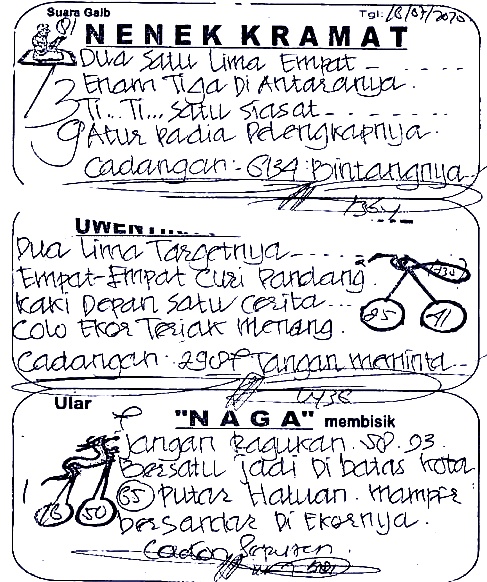 Suara Gaib
Tgl: 18/07/2020
NENEK KRAMAT
Dua Satu Lima Empat
Enam Tiga Di Antaranya.
Ti...Ti... Satu Siasat
Atur Padia Pelengkapnya.
Cadangan - 6134 Bintangnya
UWENTI
Dua Lima Targetnya
Empat-Empat Curi Pandang.
Kaki Depan Satu Cerita
Colo Ekor Teriak Menang.
Cadangan Tangan meminta
85 41
Ular
"NAGA" membisik
Jangan Ragukan. 58.93.
Bersatu jadi Di batas kota
35 Putar Haluan. Mampir
bersandar Di Ekornya.
13 50